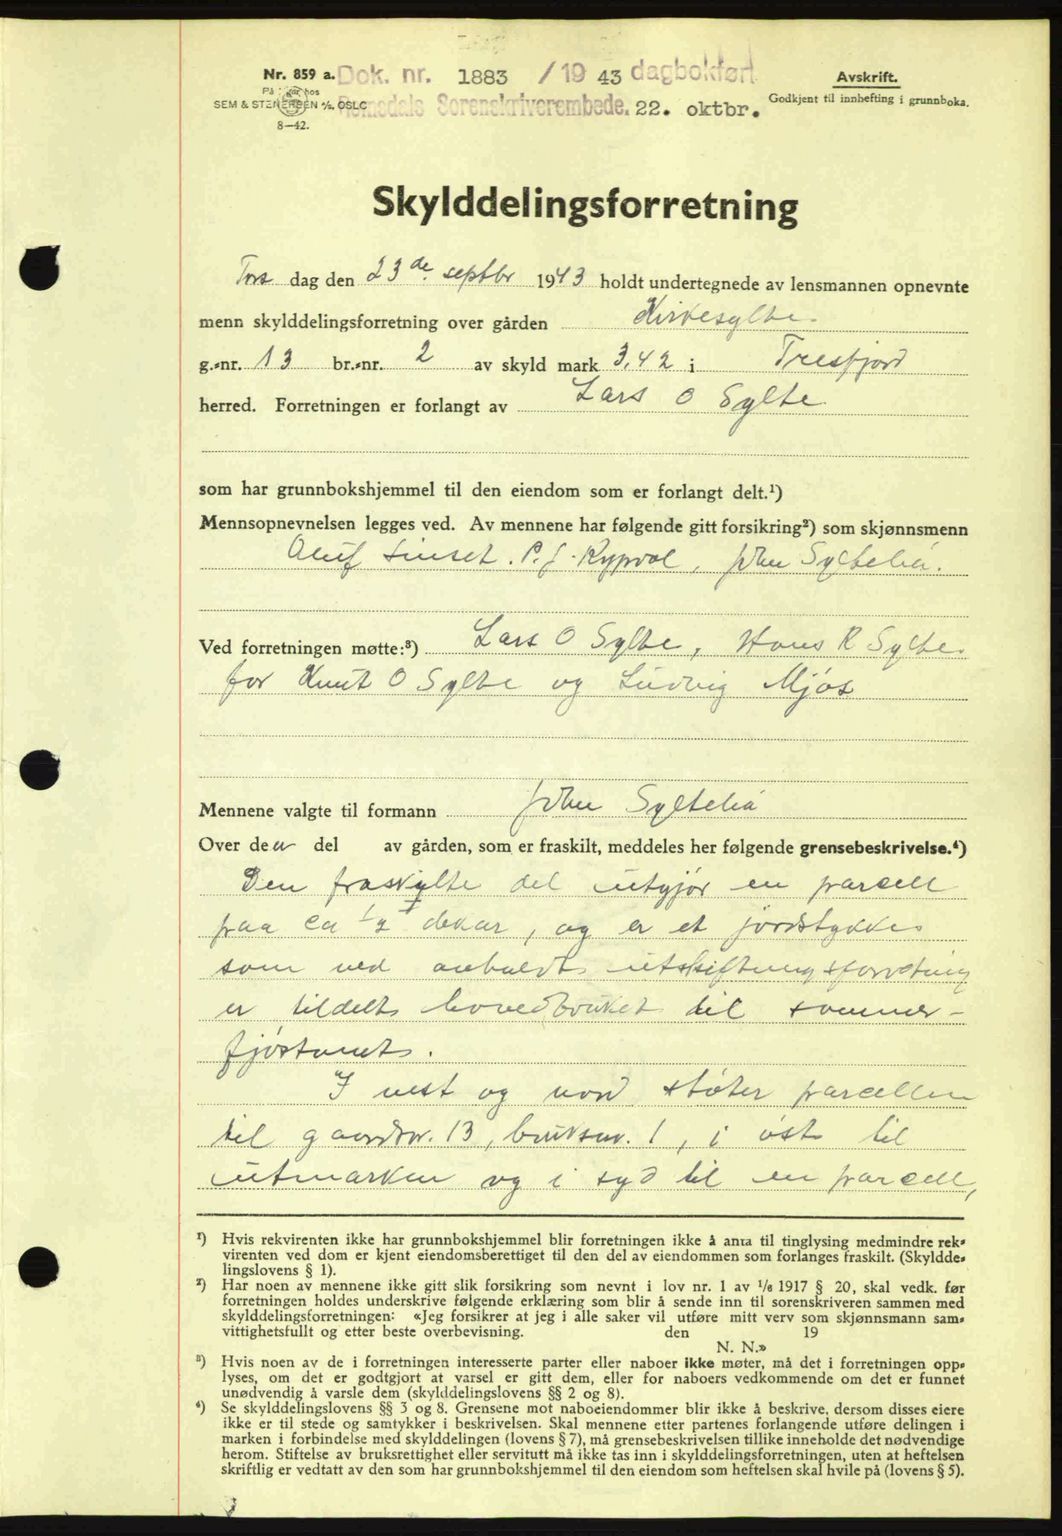 Nr. 859 a. Dok. nr. 1883 /19 43 dagbokført
Avskrift.
På lager hos
SEM & STENERSEN A/S, OSLO Romsdals Sorenskriverembede. 22. oktbr.
Godkjent til innhefting i grunnboka.
8—42.
Skylddelingsforretning
Tors dag den 23de septbr 1943 holdt undertegnede av lensmannen opnevnte
menn skylddelingsforretning over gården Kirkesylte.
g.-nr. 13 br.-nr. 2 av skyld mark 3,42 i Tresfjord
herred. Forretningen er forlangt av Lars O Sylte
som har grunnbokshjemmel til den eiendom som er forlangt delt.¹)
Mennsopnevnelsen legges ved. Av mennene har følgende gitt forsikring²) som skjønnsmenn
Oluf Linset. P. J. Kypvol, John Sylteliå.
Ved forretningen møtte:³) Lars O Sylte, Hans K Sylte
for Knut O Sylte og Ludvig Mjøs
Mennene valgte til formann John Sylteliå
Over den del av gården, som er fraskilt, meddeles her følgende grensebeskrivelse.⁴)
Den fraskylte del utgjør en parcell
paa ca ½ dekar, og er et jordstykke
som ved anholdt utskiftningsforretning
er tildelt hovedbruket til sommer-
fjøstomt.
I vest og nord støter parcellen
til gaardnr. 13, bruksnr. 1, i øst til
utmarken og i syd til en parcell,
¹) Hvis rekvirenten ikke har grunnbokshjemmel blir forretningen ikke å anta til tinglysing medmindre rek-
virenten ved dom er kjent eiendomsberettiget til den del av eiendommen som forlanges fraskilt. (Skyldde-
lingslovens § 1).
²) Har noen av mennene ikke gitt slik forsikring som nevnt i lov nr. 1 av 1/6 1917 § 20, skal vedk. før
forretningen holdes underskrive følgende erklæring som blir å sende inn til sorenskriveren sammen med
skylddelingsforretningen: «Jeg forsikrer at jeg i alle saker vil utføre mitt verv som skjønnsmann sam-
vittighetsfullt og etter beste overbevisning. den 19
N. N.»
³) Hvis noen av de i forretningen interesserte parter eller naboer ikke møter, må det i forretningen opp-
lyses, om det er godtgjort at varsel er gitt dem, eller for naboers vedkommende om det er funnet
unødvendig å varsle dem (skylddelingslovens §§ 2 og 8).
⁴) Se skylddelingslovens §§ 3 og 8. Grensene mot naboeiendommer blir ikke å beskrive, dersom disses eiere
ikke er til stede og samtykker i beskrivelsen. Skal mennene etter partenes forlangende utføre delingen i
marken i forbindelse med skylddelingen (lovens § 7), må grensebeskrivelsen tillike inneholde det nødvendige
herom. Stiftelse av bruksrettighet eller servitutt må ikke tas inn i skylddelingsforretningen, uten at heftelsen
skriftlig er vedtatt av den som har grunnbokshjemmel til den eiendom som heftelsen skal hvile på (lovens § 5).